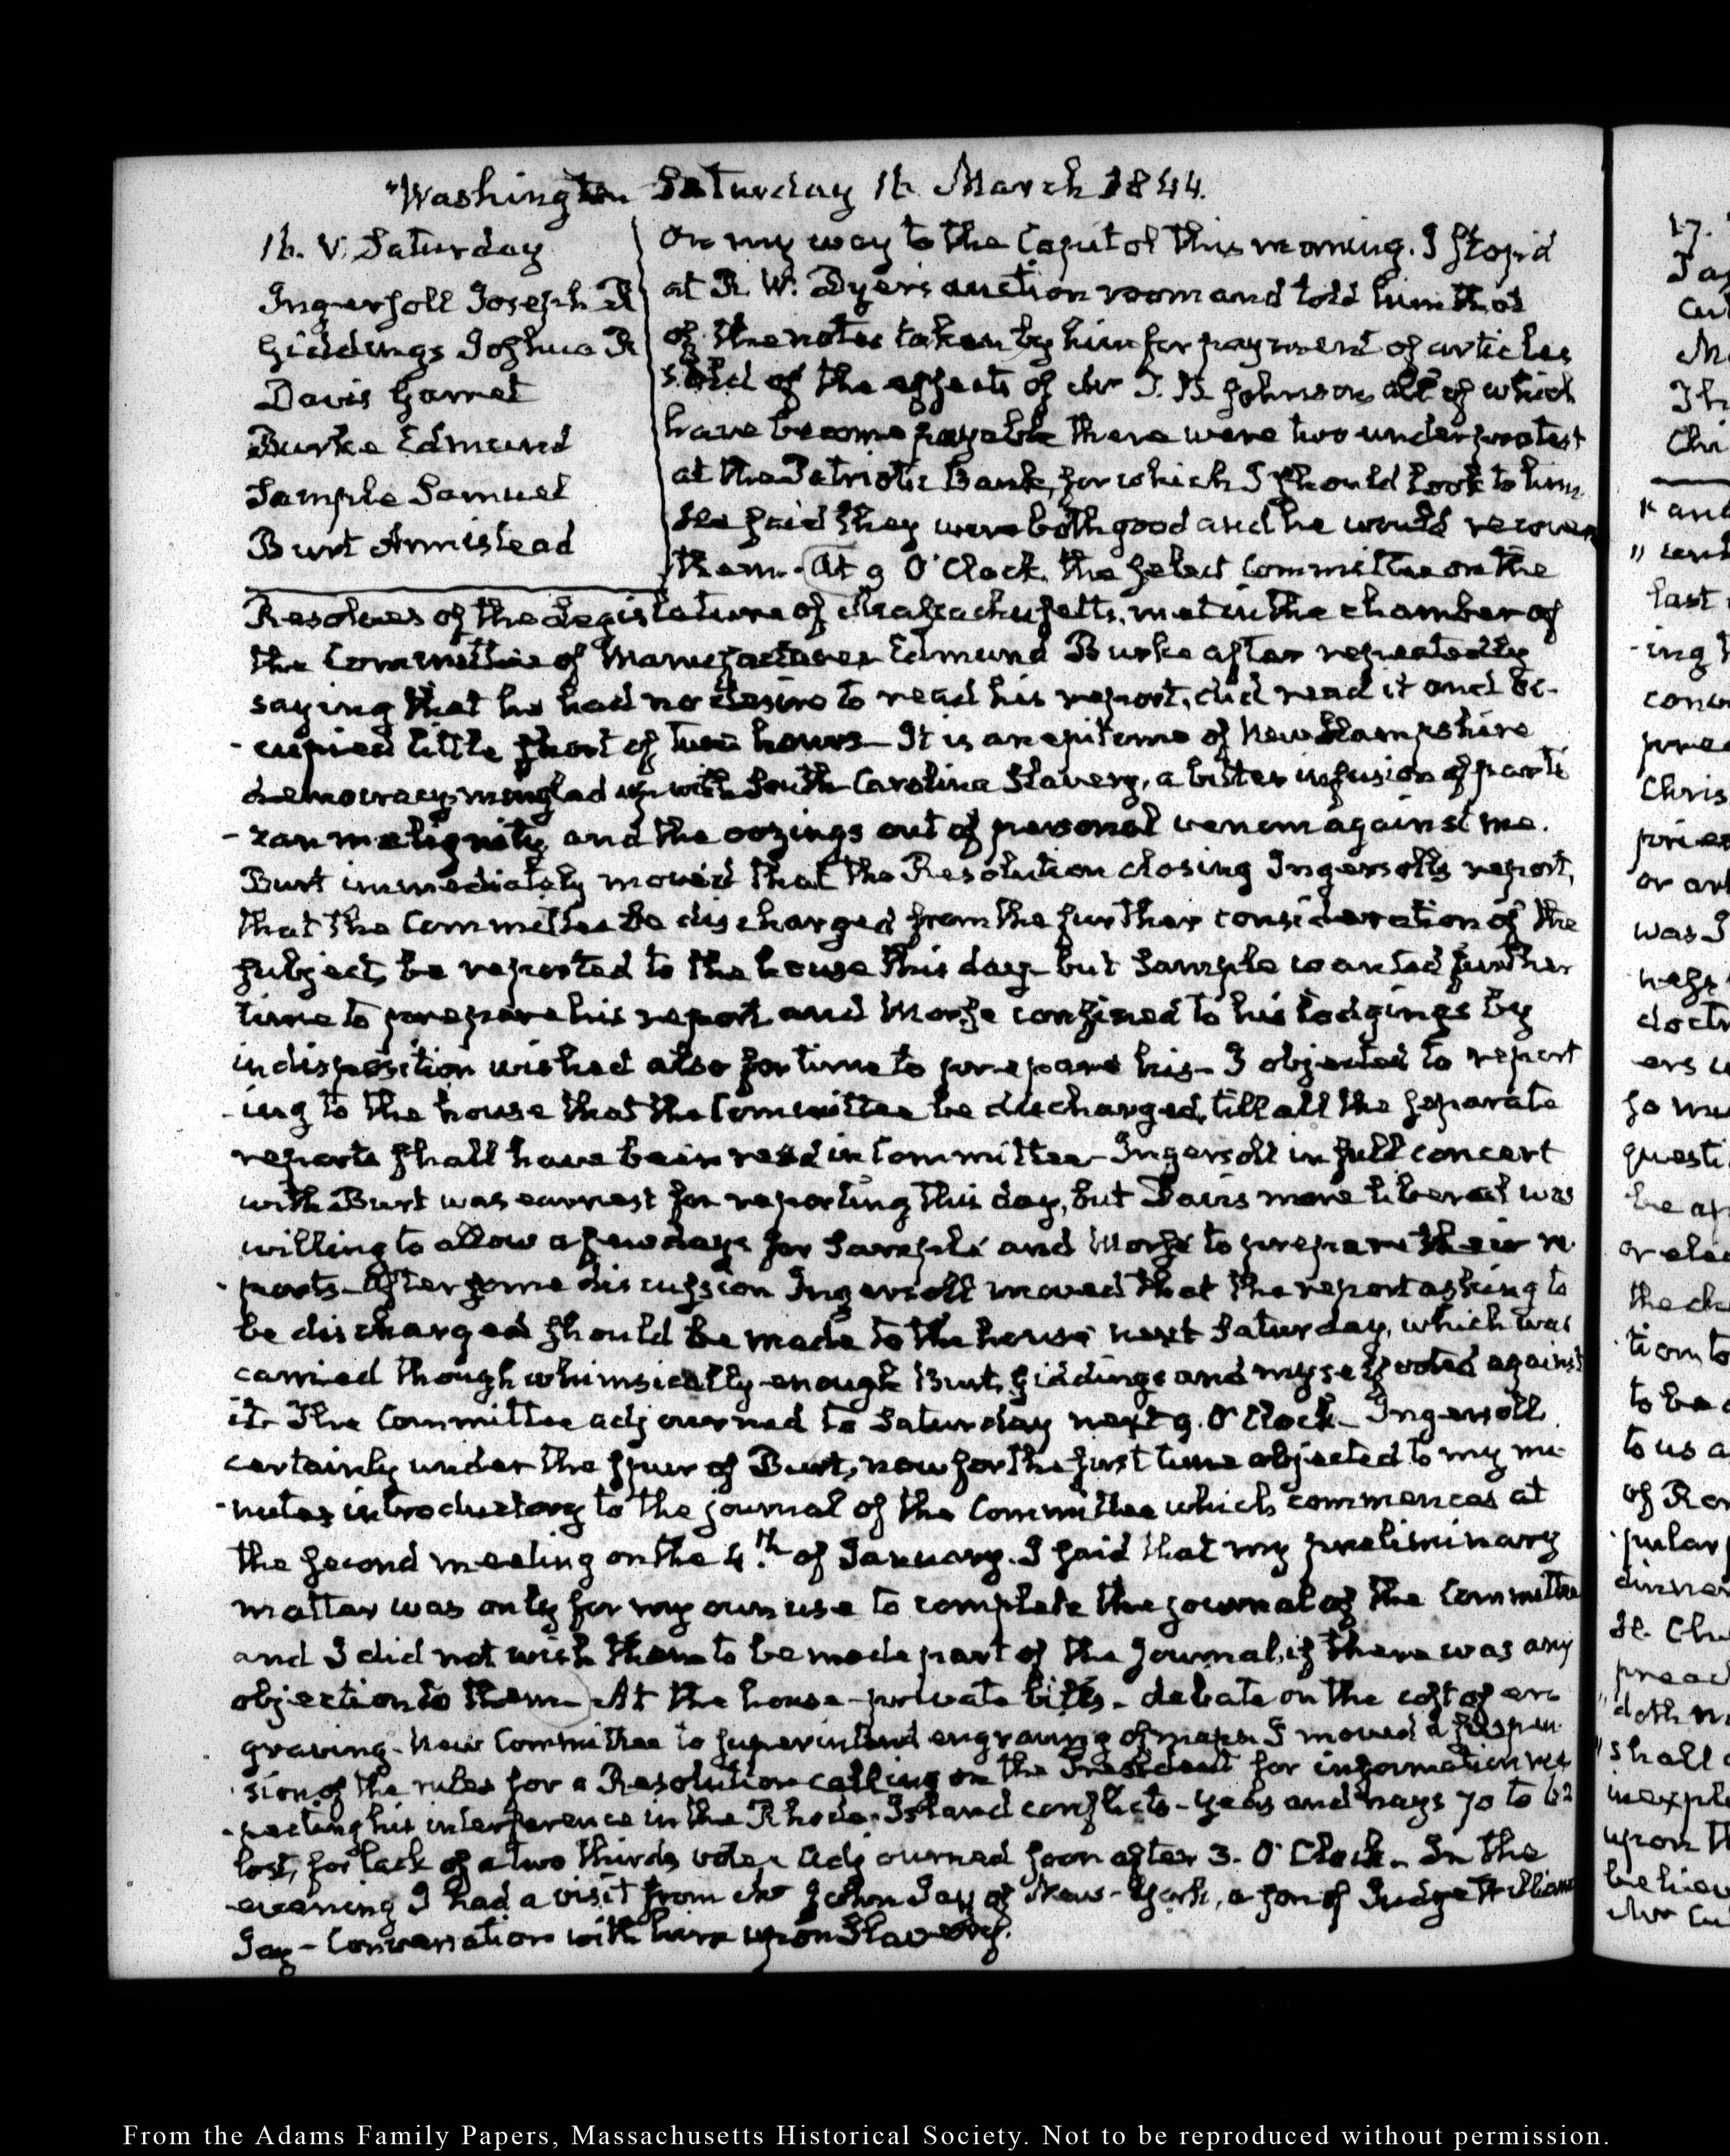 Washington Saturday 16. March 1844.
16. V. Saturday
Ingersoll Joseph R
Giddings Joshua R
Davis Garret
Burke Edmund
Sample Samuel
Burt Armistead
On my way to the Capitol this morning. I stop'd
at R. W. Dyer's auction room and told him that
of the notes taken by him for payment of articles
sold of the effects of Mr T. B. Johnson all of which
have become payable there were two under protest
at the Patriotic Bank, for which I should look to him.
He said they were both good and he would recover
them. At 9 O'Clock. the select Committee on the
Resolves of the Legislature of Massachusetts. met in the chamber of
the Committee of Manufactures Edmund Burke after repeatedly
saying that he had no desire to read his report, did read it and oc-
-cupied little short of two hours— It is an epitome of New Hampshire
democracy mingled up with South Carolina Slavery, a bitter infusion of parti
-zan malignity, and the oozings out of personal venom against me.
Burt immediately moved that the Resolution closing Ingersoll's report,
that the Committee be discharged from the further consideration of the
subject, be reported to the house this day— but Sample wanted further
time to prepare his report and Morse confined to his lodgings by
indisposition wished also for time to prepare his— I objected to report
-ing to the house that the Committee be discharged, till all the separate
reports shall have been read in Committee— Ingersoll in full concert
with Burt was earnest for reporting this day, but Davis more liberal was
willing to allow a few days for Sample and Morse to prepare their re
-ports— After some discussion Ingersoll moved that the report asking to
be discharged should be made to the house next Saturday, which was
carried though whimsically enough Burt, Giddings and myself voted against
it. The Committee adjourned to Saturday next 9. O'Clock— Ingersoll
certainly under the spur of Burt, now for the first time objected to my mi-
-nutes introductory to the journal of the Committee which commences at
the second meeting on the 4.th of January. I said that my preliminary
matter was only for my own use to complete the journal of the Committee
and I did not wish them to be made part of the Journal, if there was any
objection to them— At the house— private bills— debate on the cost of en-
graving— New Committee to superintend engraving of maps. I moved a suspen-
sion of the rules for a Resolution calling on the President for information res
-pecting his interference in the Rhode-Island conflicts— yeas and nays 70 to 62
lost, for lack of a two thirds vote. Adjourned soon after 3. O'Clock— In the
evening I had a visit from Mr John Jay of New-York, a son of Judge William
Jay— Conversation with him upon Slavery.
17.
last
-ing
Chris
or
was I
questi
or elec
tion to
to be
to us a
of Rom
dinner
preac
doth n
shall
inexpl
upon th
believ
From the Adams Family Papers, Massachusetts Historical Society. Not to be reproduced without permission.